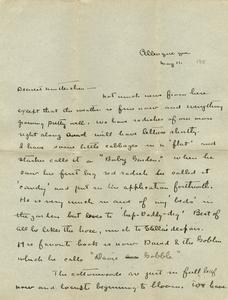 Albuquerque
May 11
Dearest Mutterchen -
Not much news from here
except that the weather is fine now and everything
growing pretty well. We have radishes of our own
right along and will have lettuce shortly.
I have some little cabbages in a "flat" and
calls it a "Baby Garden." When he
saw his first big red radish he called it
"candy" and put in his application forthwith.
He is very much in and of my "beds" in
the garden but loves to "help Daddy-dig" Best of
all he likes the hose, much to Stella's despair.
His favorite book is now David & the Goblin
which he calls "Davie Gobble"
The cottonwoods are just in full leaf
now and locusts beginning to bloom. We have